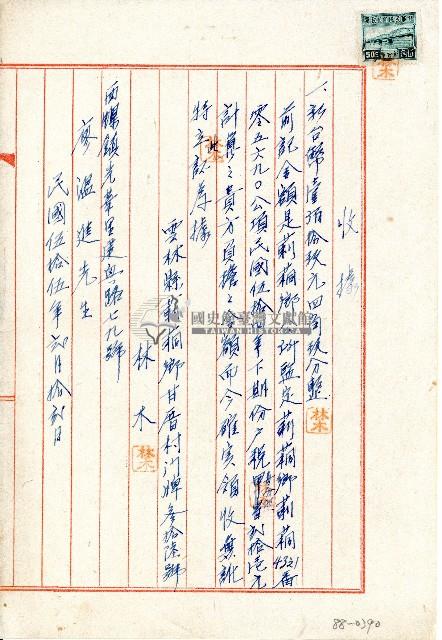 收據
一、新台幣壹佰拾玖元四角玖分整
前記金額是莿桐鄉所監定莿桐鄉莿桐4321番
零五六九〇公項民國伍拾四年下期份戶稅甲當貳拾元
計算之貴方負擔之零額而今確實領收無訛
特立此証為據
雲林縣莿桐鄉甘厝村門牌參拾陸號
林木
西螺鎮光華里建興路七九號
廖溫進先生
民國伍拾伍年貳月拾貳日
林木
林木
林木
50
國史館臺灣文獻館
TAIWAN HISTORICA
88-0390